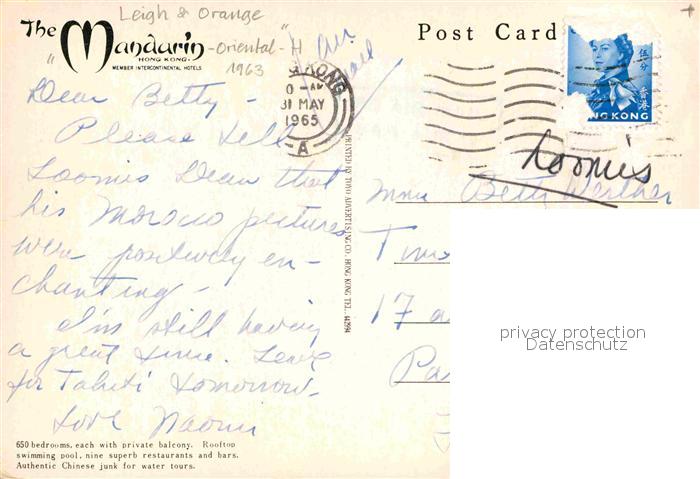 Leigh & Orange
The Mandarin
HONG KONG
MEMBER INTERCONTINENTAL HOTELS
" -Oriental-" H
1963
Air
Mail
Post Card
伍分
香港
HONG KONG
KONG
AM
31 MAY
1965
A
Loomis
Dear Betty -
Please tell
Loomis Dean that
his Morocco pictures
were positively en-
chanting -
I'm still having
a great time. Leave
for Tahiti tomorrow.
Love Naomi
PRINTED BY TOYO ADVERTISING CO. HONG KONG TEL. 442994
Betty Werther
Time
17 a
Pa
privacy protection
Datenschutz
650 bedrooms, each with private balcony. Rooftop
swimming pool, nine superb restaurants and bars.
Authentic Chinese junk for water tours.